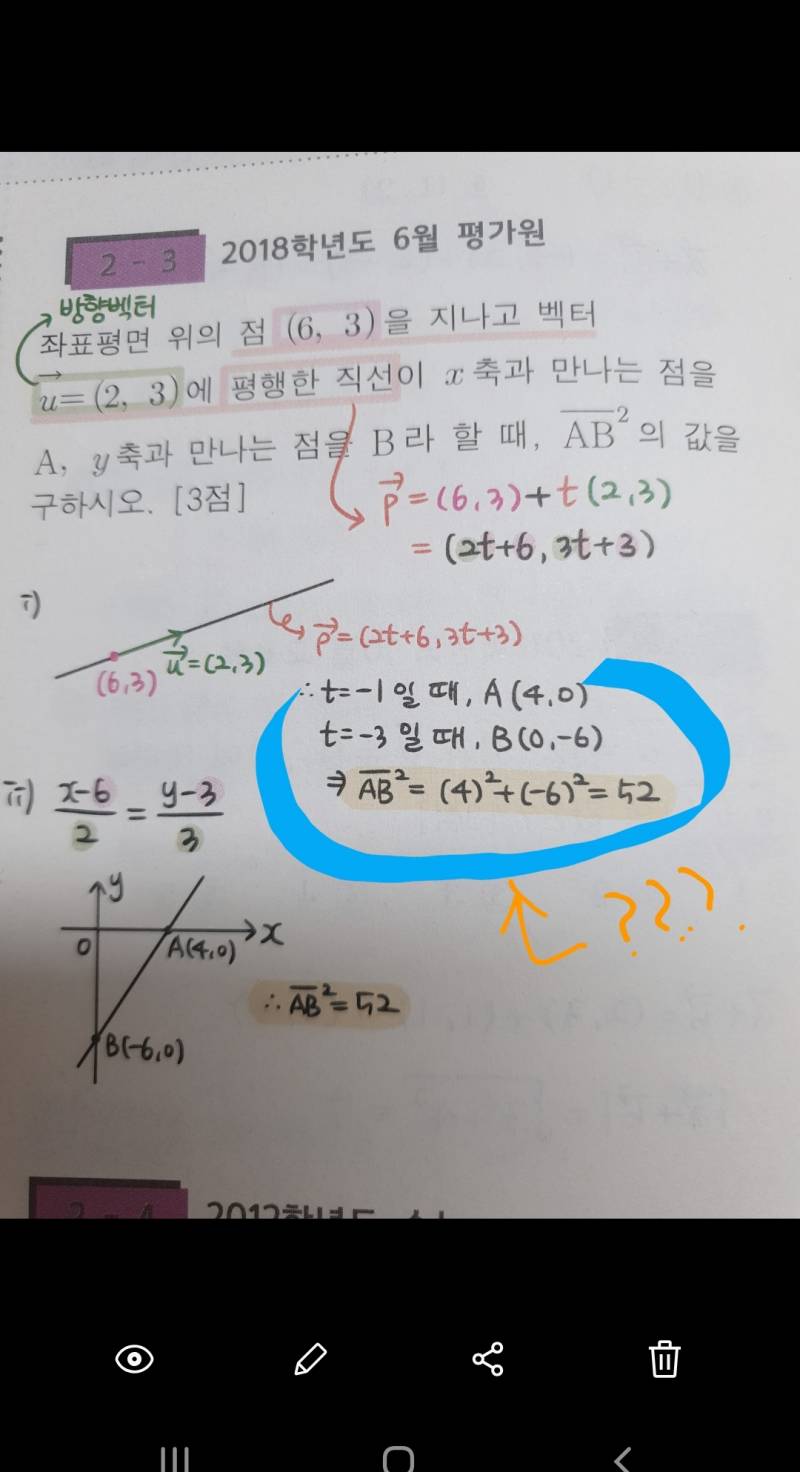 2 - 3 2018학년도 6월 평가원
방향벡터
좌표평면 위의 점 (6, 3)을 지나고 벡터
u→=(2, 3)에 평행한 직선이 x축과 만나는 점을
A, y축과 만나는 점을 B라 할 때, A̅B̅²의 값을
구하시오. [3점]
p→=(6,3)+t(2,3)
=(2t+6,3t+3)
i)
p→=(2t+6,3t+3)
u→=(2,3)
(6,3)
∴t=-1일 때, A(4,0)
t=-3일 때, B(0,-6)
⇒ A̅B̅²=(4)²+(-6)²=52
ii) x-6/2 = y-3/3
???.
y
0 A(4,0) x
∴A̅B̅²=52
B(-6,0)
2 - 4 2012학년도